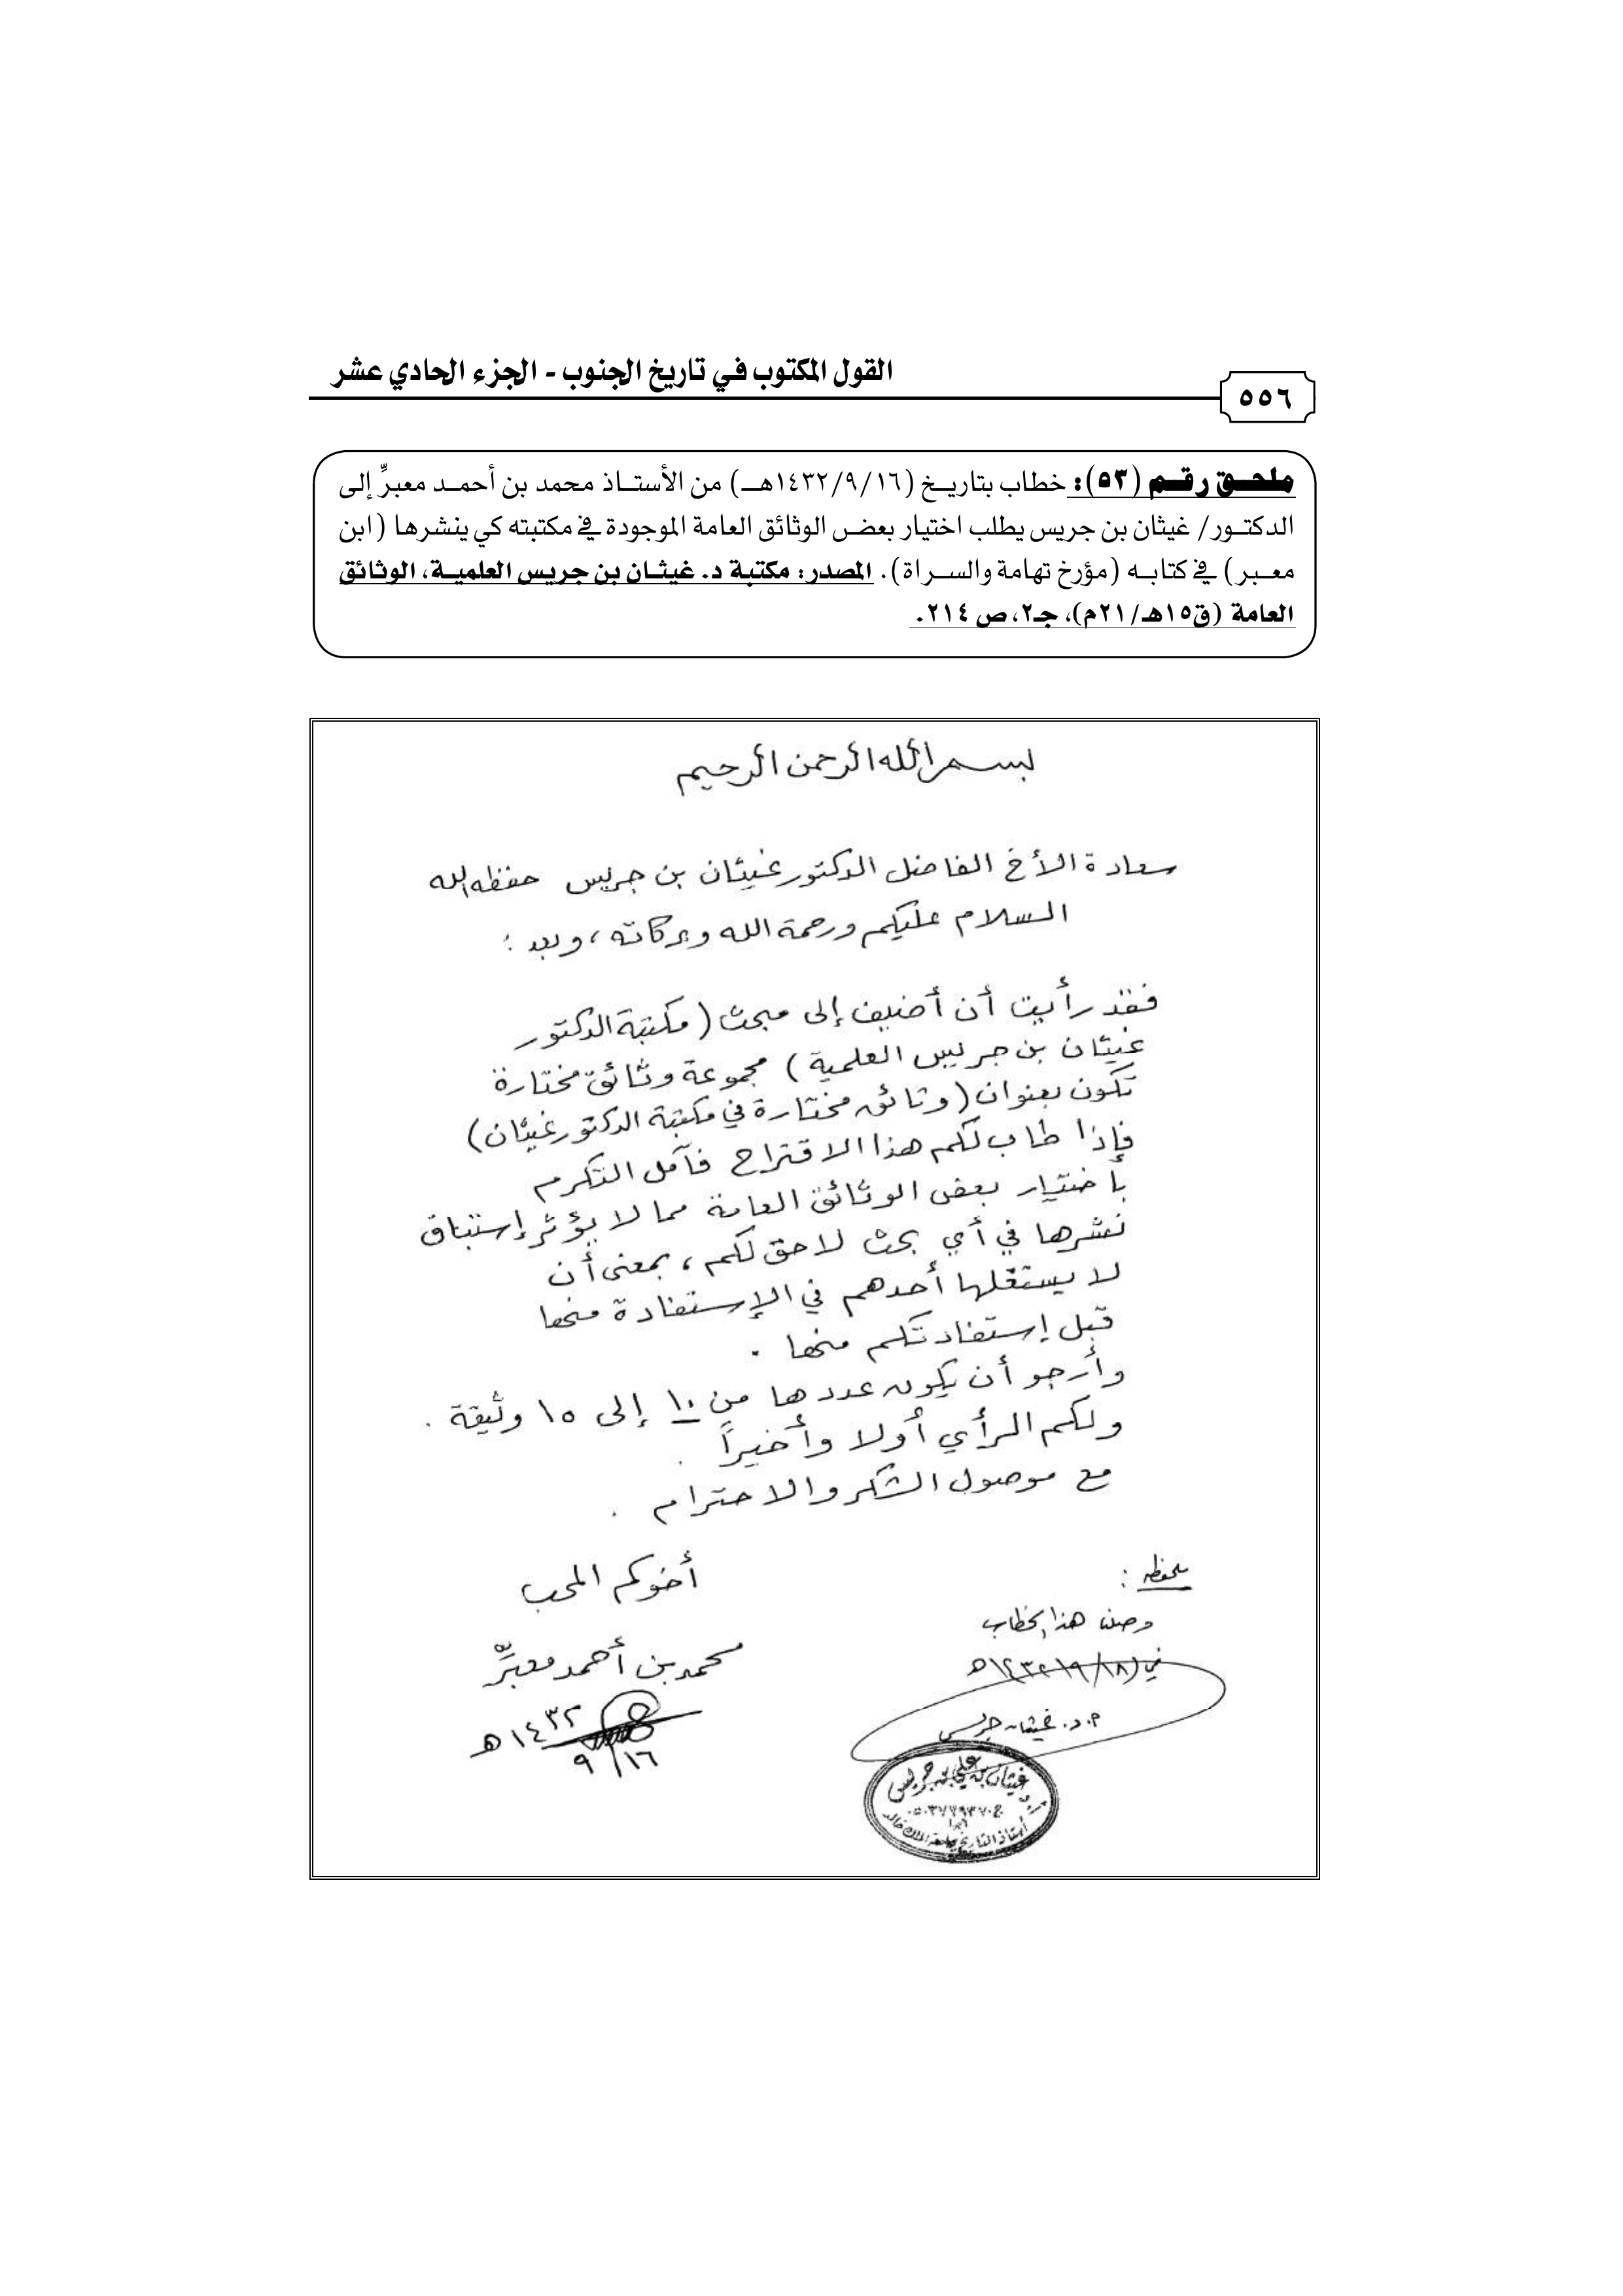 القول المكتوب في تاريخ الجنوب - الجزء الحادي عشر
٥٥٦
ملحق رقم (٥٣): خطاب بتاريخ (١٤٣٢/٩/١٦هـ) من الأستاذ محمد بن أحمد معبرٍّ إلى
الدكتور/ غيثان بن جريس يطلب اختيار بعض الوثائق العامة الموجودة في مكتبته كي ينشرها (ابن
معبر) في كتابه (مؤرخ تهامة والسراة). المصدر: مكتبة د. غيثان بن جريس العلمية، الوثائق
العامة (ق١٥هـ/٢١م)، جـ٢، ص ٢١٤.
بسم الله الرحمن الرحيم
سعادة الأخ الفاضل الدكتور غيثان بن جريس حفظه الله
السلام عليكم ورحمة الله وبركاته، وبعد :
فقد رأيت أن أضيف إلى مبحث (مكتبة الدكتور
غيثان بن جريس العلمية) مجموعة وثائق مختارة
تكون بعنوان (وثائق مختارة في مكتبة الدكتور غيثان)
فإذا طاب لكم هذا الاقتراح فآمل التكرم
بأختيار بعض الوثائق العامة مما لا يؤثر إستباق
نشرها في أي بحث لاحق لكم، بمعنى أن
لا يستغلها أحدهم في الإستفادة منها
قبل إستفادتكم منها .
وأرجو أن يكون عددها من ١٠ إلى ١٥ وثيقة .
ولكم الرأي أولا وأخيراً .
مع موصول الشكر والاحترام .
أخوكم المحب
محمد بن أحمد معبرٍّ
١٤٣٢هـ
٩/١٦
ملحوظه :
وصلنا هذا الخطاب
في ١٤٣٢/٩/١٨هـ
أ.د. غيثان جريس
أ.د. غيثان بن علي بن جريس
أستاذ التاريخ بجامعة الملك خالد